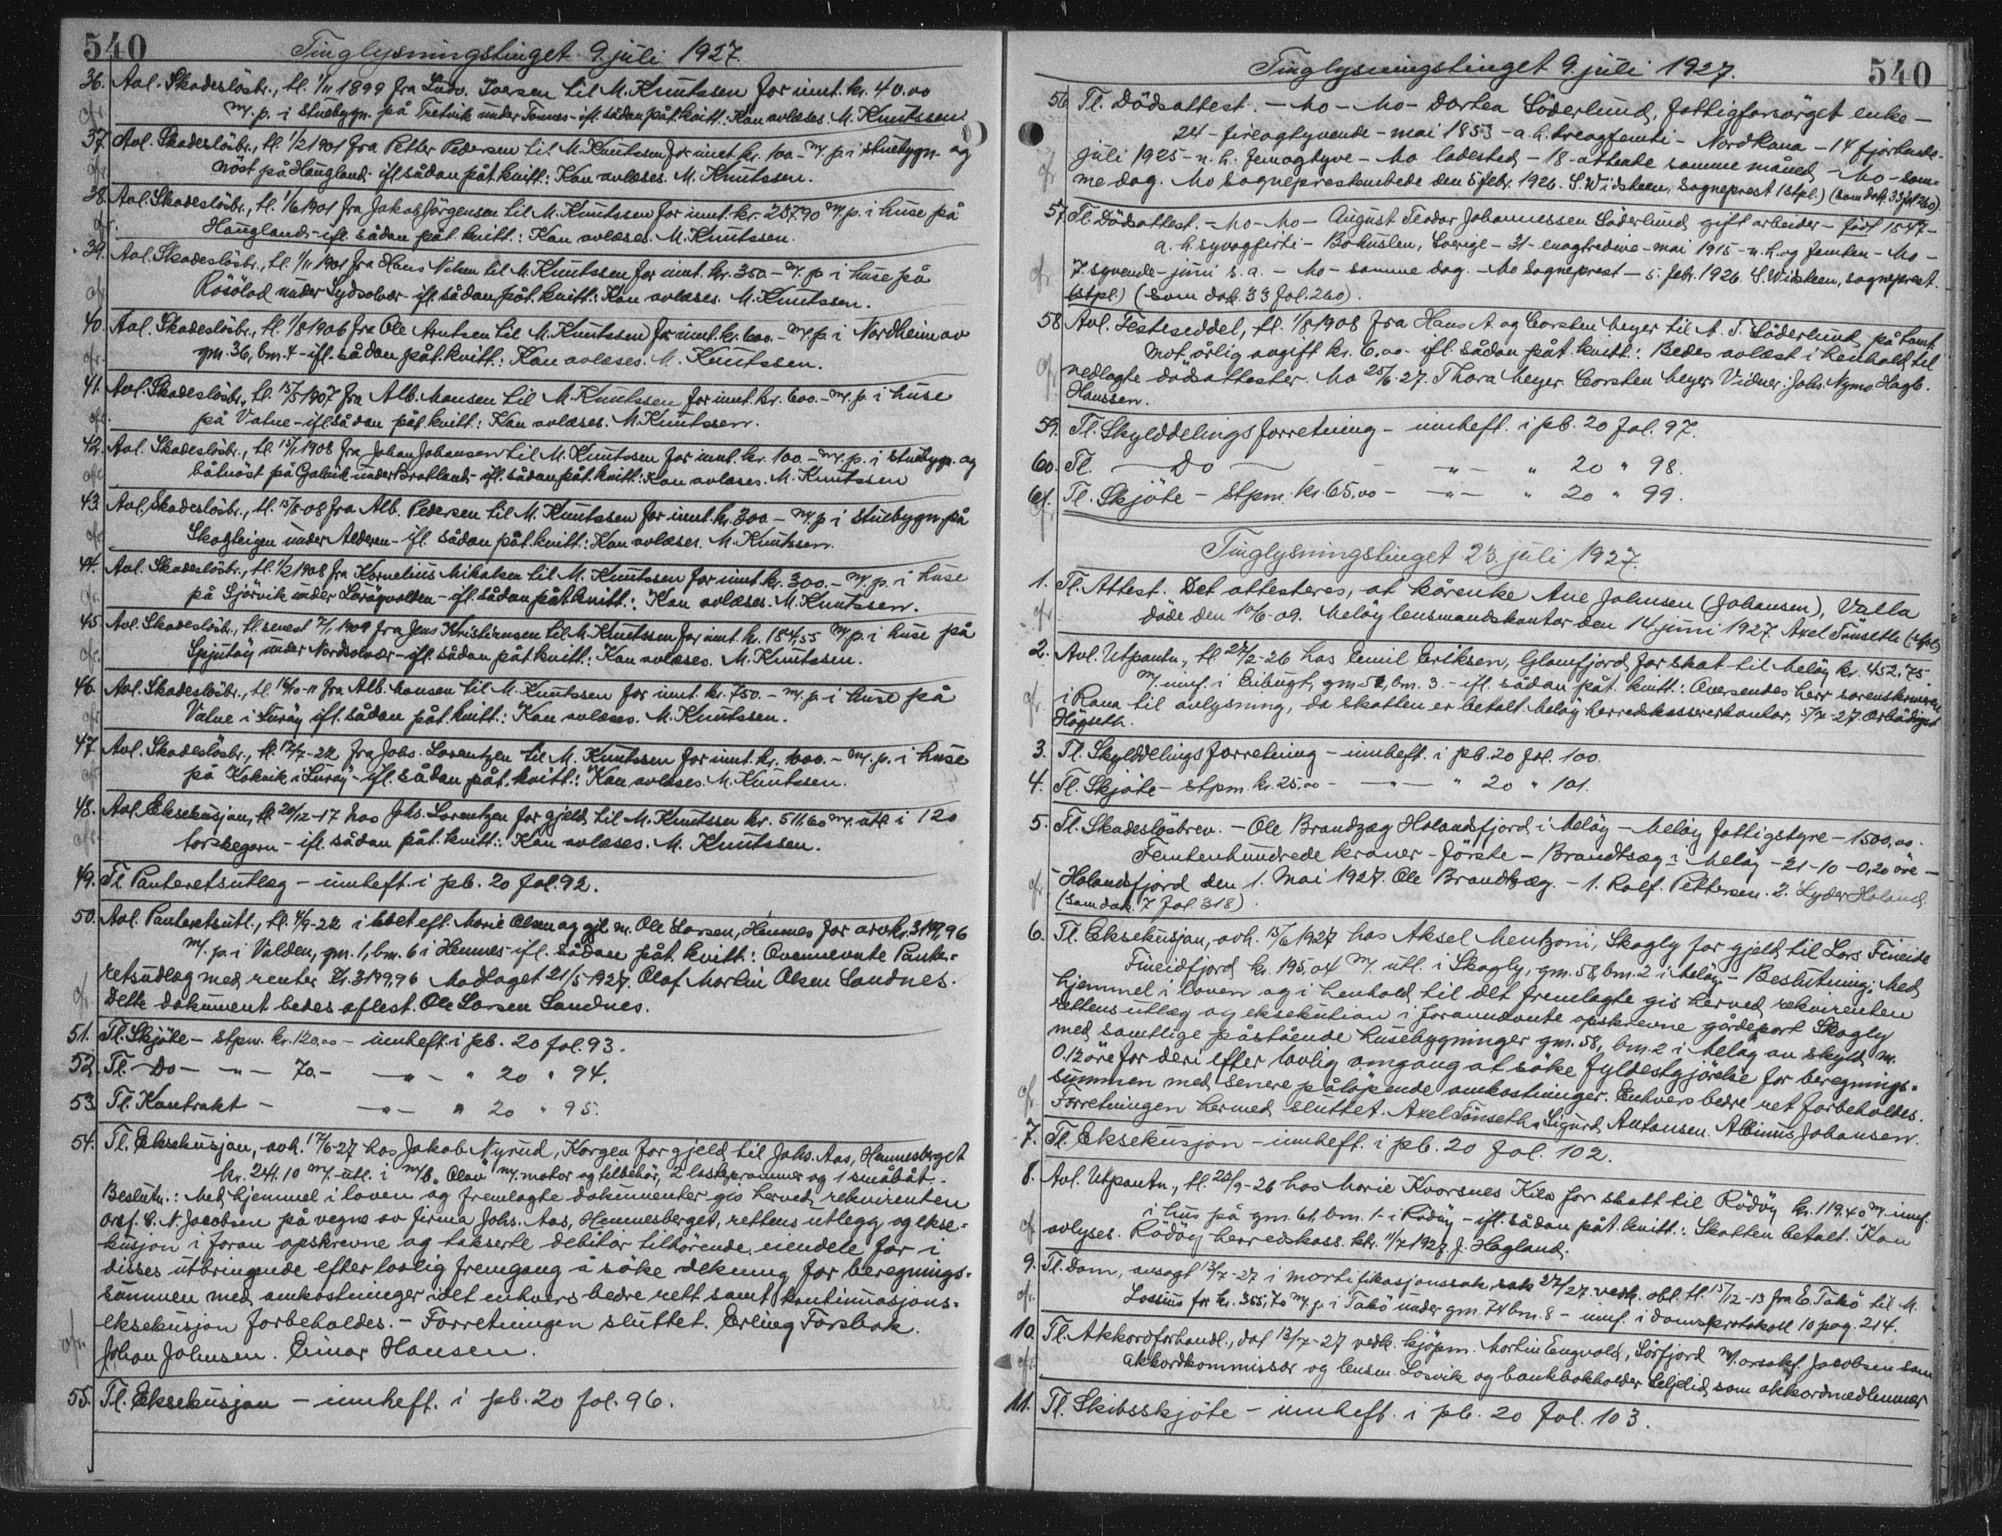 540
Tinglysningstinget 9 juli 1927.
36. Avl. Skadeslösbr., tl. 1/11 1899 fra Ludv. Iversen til M. Knutssen for innt. kr. 40.00
m/. p. i stuebygn. på Tretvik under Tonnes - ifl. sådan påt. kvitt.: Kan avlæses. M. Knutssen
37. Avl. Skadeslösbr., tl. 1/2 1901 fra Petter Pedersen til M. Knutssen for innt. kr. 100 - m/. p. i stuebygn. og
nöst på Haugland - ifl. sådan påt. kvitt.: Kan avlæses. M. Knutssen.
38. Avl. Skadeslösbr., tl. 1/6 1901 fra Jakob Jörgensen til M. Knutssen for innt. kr. 237.90 m/. p. i huse på
Haugland - ifl. sådan påt. kvitt.: Kan avlæses. M. Knutssen.
39. Avl. Skadeslösbr., tl. 1/11 1901 fra Hans Nilsen til M. Knutssen for innt. kr. 350 - m/. p. i huse på
under Sydsolvær - ifl. sådan påt. kvitt.: Kan avlæses. M. Knutssen.
40. Avl. Skadeslösbr., tl. 1/8 1906 fra Ole Arntsen til M. Knutssen for innt. kr. 600. - m/. p. i Nordheim av
gm. 36, bm. 4 - ifl. sådan påt. kvitt.: Kan avlæses. M. Knutssen.
41. Avl. Skadeslösbr., tl. 15/5 1907 fra Alb. Hansen til M. Knutssen for innt. kr. 600. - m/. p. i huse
på Vatne - ifl. sådan påt. kvitt.: Kan avlæses. M. Knutssen.
42. Avl. Skadeslösbr., tl. 15/1 1908 fra Johan Johansen til M. Knutssen for innt. kr. 100. - m/. p. i stuebygn. og
båtnöst på under Bratland - ifl. sådan påt. kvitt.: Kan avlæses. M. Knutssen
43. Avl. Skadeslösbr., tl. 15/8-08 fra Alb. Pedersen til M. Knutssen for innt. kr. 300 - m/. p. i stuebygn. på
Skogteigen under Alderen - ifl. sådan påt. kvitt.: Kan avlæses. M. Knutssen.
44. Avl. Skadeslösbr., tl. 1/2 1908 fra Kornelius Mikalsen til M. Knutssen for innt. kr. 300. - m/. p. i huse
på Sjörvik under - ifl. sådan påt. kvitt.: Kan avlæses. M. Knutssen.
45. Avl. Skadeslösbr., tl. senest 7/1 1909 fra Jens Kristiansen til M. Knutssen for innt. kr. 154,55 m/. p. i huse på
Spjutöy under Nordsolvær - ifl. sådan påt. kvitt.: Kan avlæses. M. Knutssen.
46. Avl. Skadeslösbr., tl. 16/10-11 fra Alb. Hansen til M. Knutssen for innt. kr. 750. - m/. p. i huse på
Vatne i Luröy ifl. sådan påt. kvitt.: Kan avlæses. M. Knutssen.
47. Avl. Skadeslösbr., tl. 12/7-22 fra Johs. Lorentzen til M. Knutssen for innt. kr. 1000. - m/. p. i huse
på Kokvik i Luröy - ifl. sådan påt. kvitt.: Kan avlæses. M. Knutssen.
48. Avl. Eksekusjon, tl. 20/12-17 hos Johs. Lorentzen for gjeld til M. Knutssen kr. 511.60 m/. utl. i 120
torskegarn - ifl. sådan påt. kvitt.: Kan avlæses. M. Knutssen.
49. Tl. Panteretsutlæg - innheft. i pb. 20 fol. 92.
50. Avl. Panteretsutl., tl. 4/9-22 i boet eft. Marie Olsen og gjl. m. Ole Larsen, Hemnes for arv kr. 3149,96
m/. p. i Valden, gm. 1, bm. 6 i Hemnes - ifl. sådan påt. kvitt.: Ovennevnte Pante-
retsudlæg med renter Kr. 3149,96 Modtaget 21/5-1927. Olaf Martin Olsen Sandnes.
Dette dokument bedes aflest. Ole Larsen Sandnes.
51. Tl. Skjöte - stpm. kr. 120,00 - innheft. i pb. 20 fol. 93.
52. Tl. Do - -"- 70. - -"- " 20 " 94.
53. Tl. Kontrakt - -"- " 20 " 95.
54. Tl. Eksekusjon, avh. 17/6-27 hos Jakob Nyrud, Korgen for gjeld til Johs. Aas, Hemnesberget
kr. 244.10 m/. utl. i m/b. "Olav" m/. motor og tilbehör, 2 losteprammer og 1 småbåt.
Beslutn.: Med hjemmel i loven og fremlagte dokumenter gis herved rekvirenten
orsf. C. N. Jacobsen på vegne av firma Johs. Aas, Hemnesberget, rettens utlegg og ekse-
kusjon i foran opskrevne og takserte debitor tilhörende eiendele for i
disses utbringende efter lovlig fremgang å söke dekning for beregnings-
summen med omkostninger idet enhvers bedre rett samt kontinuasjons-
eksekusjon forbeholdes. - Forretningen sluttet. Erling Forsbak.
Johan Johnsen. Einar Hansen.
55. Tl. Eksekusjon - innheft. i pb. 20 fol. 96.
Tinglysningstinget 9. juli 1927.
540
56. Tl. Dödsattest. - Mo - Mo - Dorthea Söderlund, fattigforsörget enke -
24 - fireogtyvende - mai 1853 - a. h. treogfemti - Nordrana - 14 fjortende -
juli 1925 - n. h. femogtyve - Mo ladested - 18 - attende samme måned - Mo - sam-
me dag. Mo sogneprestembede den 5 febr. 1926. S. Widsteen, sogneprest (stpl.) (som dok. 33 fol. 260)
57. Tl. Dödsattest. - Mo - Mo - August Teodor Johannessen Söderlund gift arbeider - födt 1847 -
a. h. syvogförti - Bohuslen, Sverige - 31 - enogtredve - mai 1915 - n. h. og femten - Mo -
7. syvende - juni s. a. - Mo - samme dag. - Mo sogneprest - 5. febr. 1926. S. Widsteen, sogneprest.
(stpl.) (som dok. 33 fol. 260).
58. Avl. Festeseddel, tl. 1/8 1908 fra Hans A. og Corsten Meyer til A. T. Söderlund på tomt
mot årlig avgift kr. 6.00 - ifl. sådan påt. kvitt.: Bedes avlæst i henhold til
vedlagte dödsattester. Mo 25/6-27. Thora Meyer. Corsten Meyer. Vidner: Johs. Nymo Hagb.
Hanssen.
59. Tl. Skylddelingsforretning - innheft. i pb. 20 fol. 97.
60. Tl. - Do - - -"- " 20 " 98.
61. Tl. Skjöte - stpm. kr. 65,00 - -"- " 20 " 99.
Tinglysningstinget 23. juli 1927.
1. Tl. Attest. Det attesteres, at kårenke Ane Johnsen (Johansen), Valla
döde den 10/6-09. Melöy lensmandskontor den 14 juni 1927. Axel Tönseth (stpl.)
2. Avl. Utpantn., tl. 27/2-26 hos Emil Eriksen, Glomfjord for skat til Melöy kr. 452.75
m/. innf. i Eibugt, gm. 51, bm. 3. - ifl. sådan påt. kvitt.: Oversendes herr sorenskriveren
i Rana til avlysning, da skatten er betalt. Melöy herredskassererkontor, 5/7-27. Ærbödigst
Högseth.
3. Tl. Skylddelingsforretning - innheft. i pb. 20 fol. 100.
4. Tl. Skjöte - stpm. kr. 25,00 - -"- " 20 " 101.
5. Tl. Skadeslösbrev. - Ole Brandzæg Holandsfjord i Melöy - Melöy fattigstyre - 1500,00.
Femtenhundrede kroner - förste - Brandtzæg i Melöy - 21 - 10 - 0,20 öre -
Holandsfjord den 1. Mai 1927. Ole Brandtzæg. - 1. Rolf. Pettersen. 2. Lyder Holand.
(som dok. 7 fol. 318).
6. Tl. Eksekusjon, avh. 15/6 1927 hos Aksel Mentzoni, Skogly for gjeld til Lars Fineide
Fineidfjord kr. 195,04 m/. utl. i Skogly, gm. 58, bm. 2 i Melöy - Beslutning: Med
hjemmel i loven og i henhold til det fremlagte gis herved rekvirenten
rettens utlæg og eksekution i forannævnte opskrevne gårdepart Skogly
med samtlige påstående husebygninger gm. 58, bm. 2 i Melöy av skyld m.
0.12 öre for deri efter lovlig omgang at söke fyldestgjörelse for beregnings-
summen med senere påløpende omkostninger. Enhvers bedre ret forbeholdes.
Forretningen hermed sluttet. Axel Tönseth. Sigurd Antonsen. Albinus Johansen.
7. Tl. Eksekusjon - innheft. i pb. 20 fol. 102.
8. Avl. Utpantn., tl. 22/9-26 hos Marie Kvarsnes Kila for skatt til Rödöy kr. 119.40 m/. innf.
i hus på gm. 61, bm. 1 i Rödöy - ifl. sådan påt. kvitt.: Skatten betalt. Kan
avlyses. Rödöy herredskass. ktr. 11/7 1927. J. Hagland.
9. Tl. Dom, avsagt 13/7-27 i mortifikasjonssak, sak 27/27 vedk. obl. tl. 15/12-13 fra E. Takö til M.
Lossius for kr. 355,70 m/. p. i Takö under gm. 74 bm. 8 - innf. i domsprotokoll 10 pag. 214.
10. Tl. Akkordforhandl., dat. 13/7-27 vedk. kjöpm. Martin Engvold, Sörfjord m/. orsakf. Jacobsen som
akkordkommissær og lensm. Losvik og bankbokholder Selfelid som akkordmedlemmer
11. Tl. Skibsskjöte - innheft. i pb. 20 fol. 103.